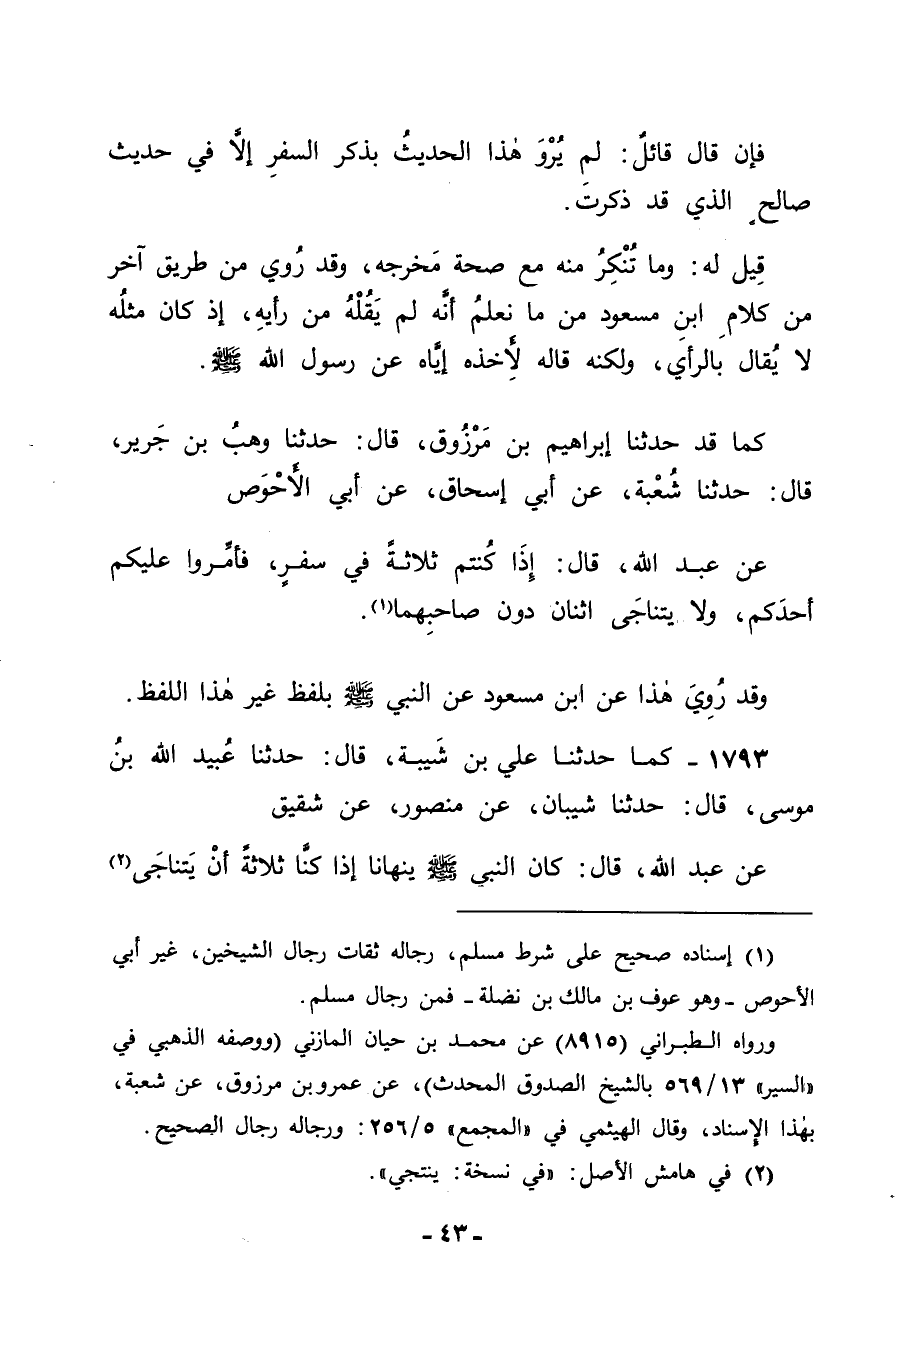 فإن قال قائلٌ: لم يُرْوَ هٰذا الحديثُ بذكر السفرِ إلَّا في حديث
صالحٍ الذي قد ذكرتَ.
قِيل له: وما تُنْكِرُ منه مع صحة مَخرجه، وقد رُوي من طريق آخر
من كلامِ ابنِ مسعود من ما نعلمُ أنَّه لم يَقُلْهُ من رأيهِ، إذ كان مثلُه
لا يُقال بالرأي، ولكنه قاله لِأَخذه إيَّاه عن رسول الله ﷺ.
كما قد حدثنا إبراهيم بن مَرْزُوق، قال: حدثنا وهبُ بن جَرير،
قال: حدثنا شُعْبة، عن أبي إسحاق، عن أبي الأَحْوَص
عن عبد الله، قال: إِذَا كُنتم ثلاثةً في سفرٍ، فأمِّروا عليكم
أحدَكم، ولا يتناجَى اثنان دون صاحبِهما(١).
وقد رُوِيَ هٰذا عن ابن مسعود عن النبي ﷺ بلفظ غير هٰذا اللفظ.
١٧٩٣ ـ كما حدثنا علي بن شَيبة، قال: حدثنا عُبيد الله بنُ
موسى، قال: حدثنا شيبان، عن منصور، عن شقيق
عن عبد الله، قال: كان النبي ﷺ ينهانا إذا كنَّا ثلاثةً أنْ يَتناجَى(٢)
(١) إسناده صحيح على شرط مسلم، رجاله ثقات رجال الشيخين، غير أبي
الأحوص ـ وهو عوف بن مالك بن نضلة ـ فمن رجال مسلم.
ورواه الطبراني (٨٩١٥) عن محمد بن حيان المازني (ووصفه الذهبي في
«السير» ٥٦٩/١٣ بالشيخ الصدوق المحدث)، عن عمرو بن مرزوق، عن شعبة،
بهٰذا الإسناد، وقال الهيثمي في «المجمع» ٢٥٦/٥: ورجاله رجال الصحيح.
(٢) في هامش الأصل: «في نسخة: ينتجي».
ـ ٤٣ ـ